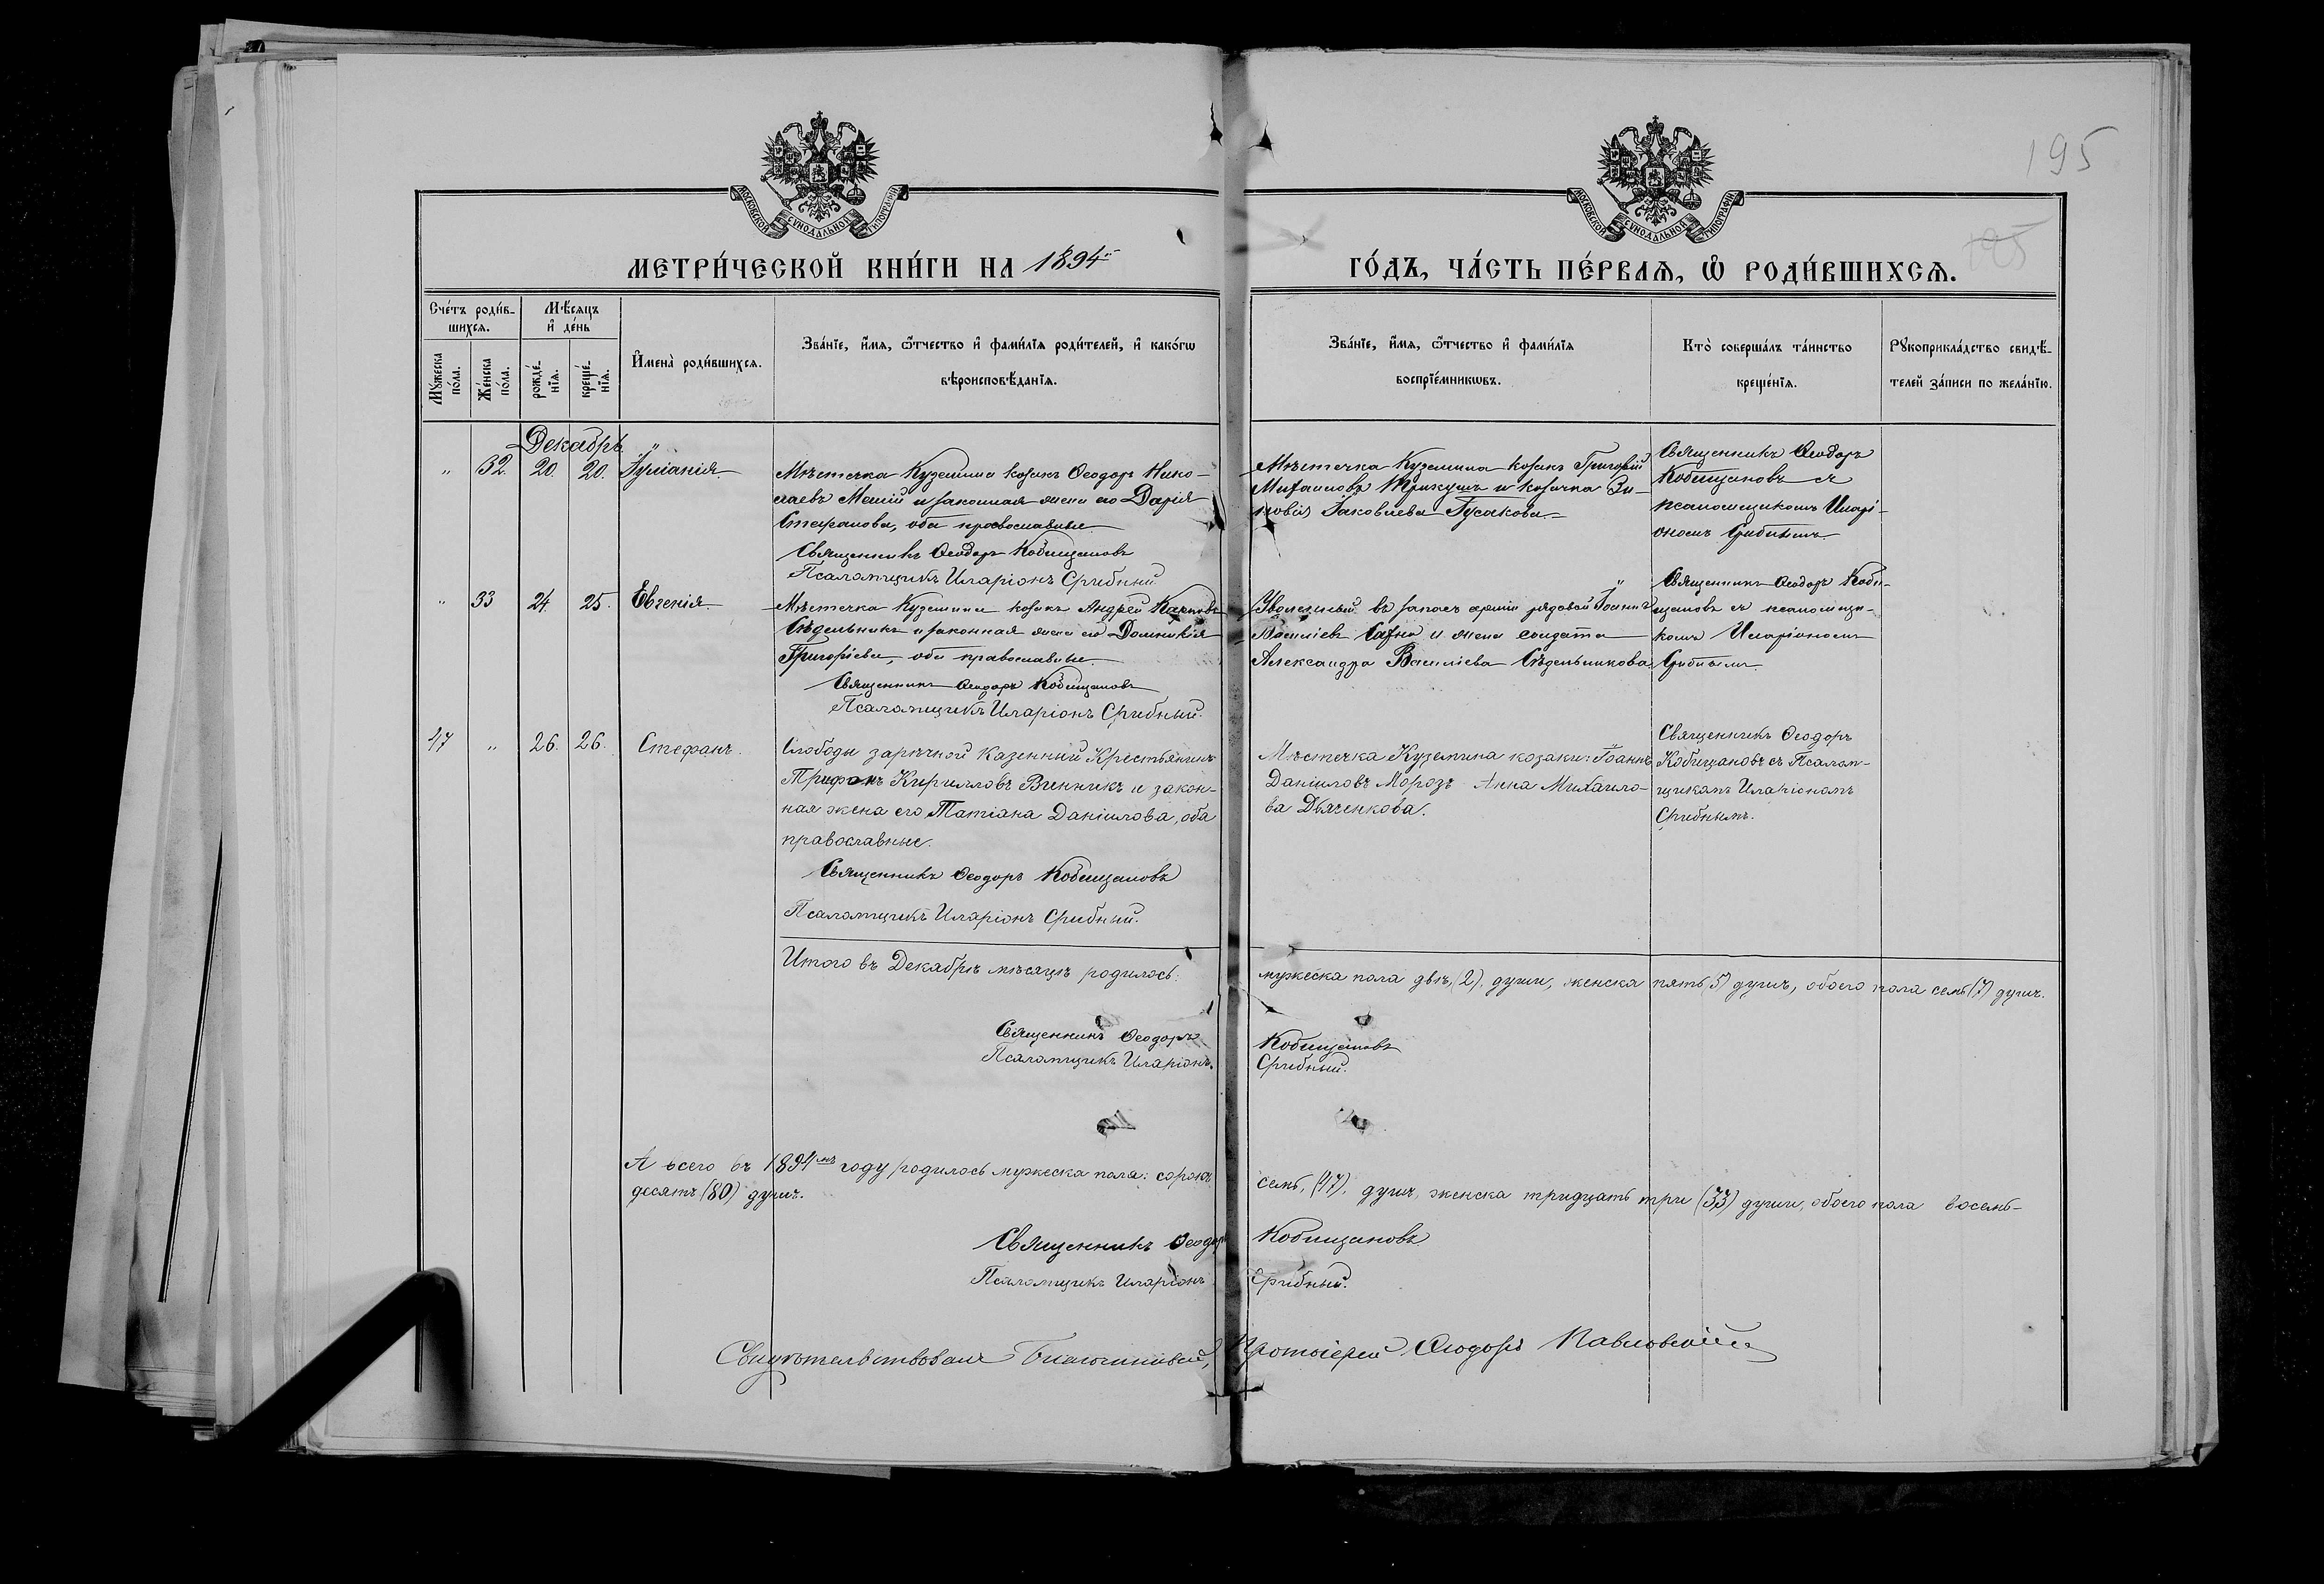 195
МОСКОВСКОЙ СѴНОДАЛЬНОЙ ТИПОГРАФІИ
МОСКОВСКОЙ СѴНОДАЛЬНОЙ ТИПОГРАФІИ
МЕТРИ́ЧЕСКОЙ КНИ́ГИ НА 1894й
ГО́ДЪ, ЧА́СТЬ ПЕ́РВАѦ, Ѡ҆ РОДИ́ВШИХСѦ.
Сче́тъ роди́в-
шихсѧ.
Мѣ́сѧцъ
и҆ де́нь
Мꙋ́жеска по́ла.
Же́нска по́ла.
рожде́-
нїѧ.
креще́-
нїѧ.
И҆мена̀ роди́вшихсѧ.
Зва́нїе, и҆́мѧ, ѻ҆́тчество и҆ фами́лїѧ роди́телей, и҆ како́гѡ
вѣроисповѣ́данїѧ.
Зва́нїе, и҆́мѧ, ѻ҆́тчество и҆ фами́лїѧ
воспрїе́мникѡвъ.
Кто̀ соверша́лъ та́инство
креще́нїѧ.
Рꙋкоприкла́дство свидѣ́-
телей за́писи по жела́нїю.
Декабрь
" 32. 20. 20. Іуліанія.
Мѣстечка Куземина козакъ Ѳеодоръ Нико-
лаевъ и законная жена его Дарія
Стефанова, оба православные
Священникъ Ѳеодоръ Кобищановъ
Псаломщикъ Иларіонъ Срибный
Мѣстечка Куземина козакъ Григорій
Михаиловъ и козачка Зи-
новія Іаковлева Гусакова.
Священникъ Ѳеодоръ
Кобищановъ съ
псаломщикомъ Иларі-
ономъ Срибнымъ.
" 33 24 25. Евгенія.
Мѣстечка Куземина козакъ Андрей Карповъ
Сѣдельникъ и законная жена его Домникія
Григоріева, оба православные.
Священникъ Ѳеодоръ Кобищановъ
Псаломщикъ Иларіонъ Срибный.
Уволенный въ запасъ арміи рядовой Іоаннъ
Василіевъ и жена солдата
Александра Василіева Сѣдельникова
Священникъ Ѳеодоръ Коби-
щановъ съ псаломщи-
комъ Иларіономъ
Срибнымъ.
47 " 26. 26. Стефанъ.
Слободы зарѣчной Казенный Крестьянинъ
Трифонъ Кирилловъ Винникъ и закон-
ная жена его Татіана Даніилова, оба
православные.
Священникъ Ѳеодоръ Кобищановъ
Псаломщикъ Иларіонъ Срибный.
Мѣстечка Куземина козаки: Іоаннъ
Даніиловъ Морозъ Анна Михаило-
ва Дьяченкова.
Священникъ Ѳеодоръ
Кобищановъ съ Псалом-
щикомъ Иларіономъ
Срибнымъ.
Итого въ Декабрѣ мѣсяцѣ родилось: мужеска пола двѣ, (2), души, женска пять (5) душъ, обоего пола семь (7) душъ.
Священникъ Ѳеодоръ Кобищановъ
Псаломщикъ Иларіонъ Срибный.
А всего въ 1894мъ году родилось мужеска пола: сорокъ семь, (47), душъ, женска тридцать три (33) души, обоего пола восемь-
десятъ (80) душъ.
Священникъ Ѳеодоръ Кобищановъ
Псаломщикъ Иларіонъ Срибный.
Свидѣтельствовалъ Благочинный, Протоіерей Ѳеодоръ Павловскій